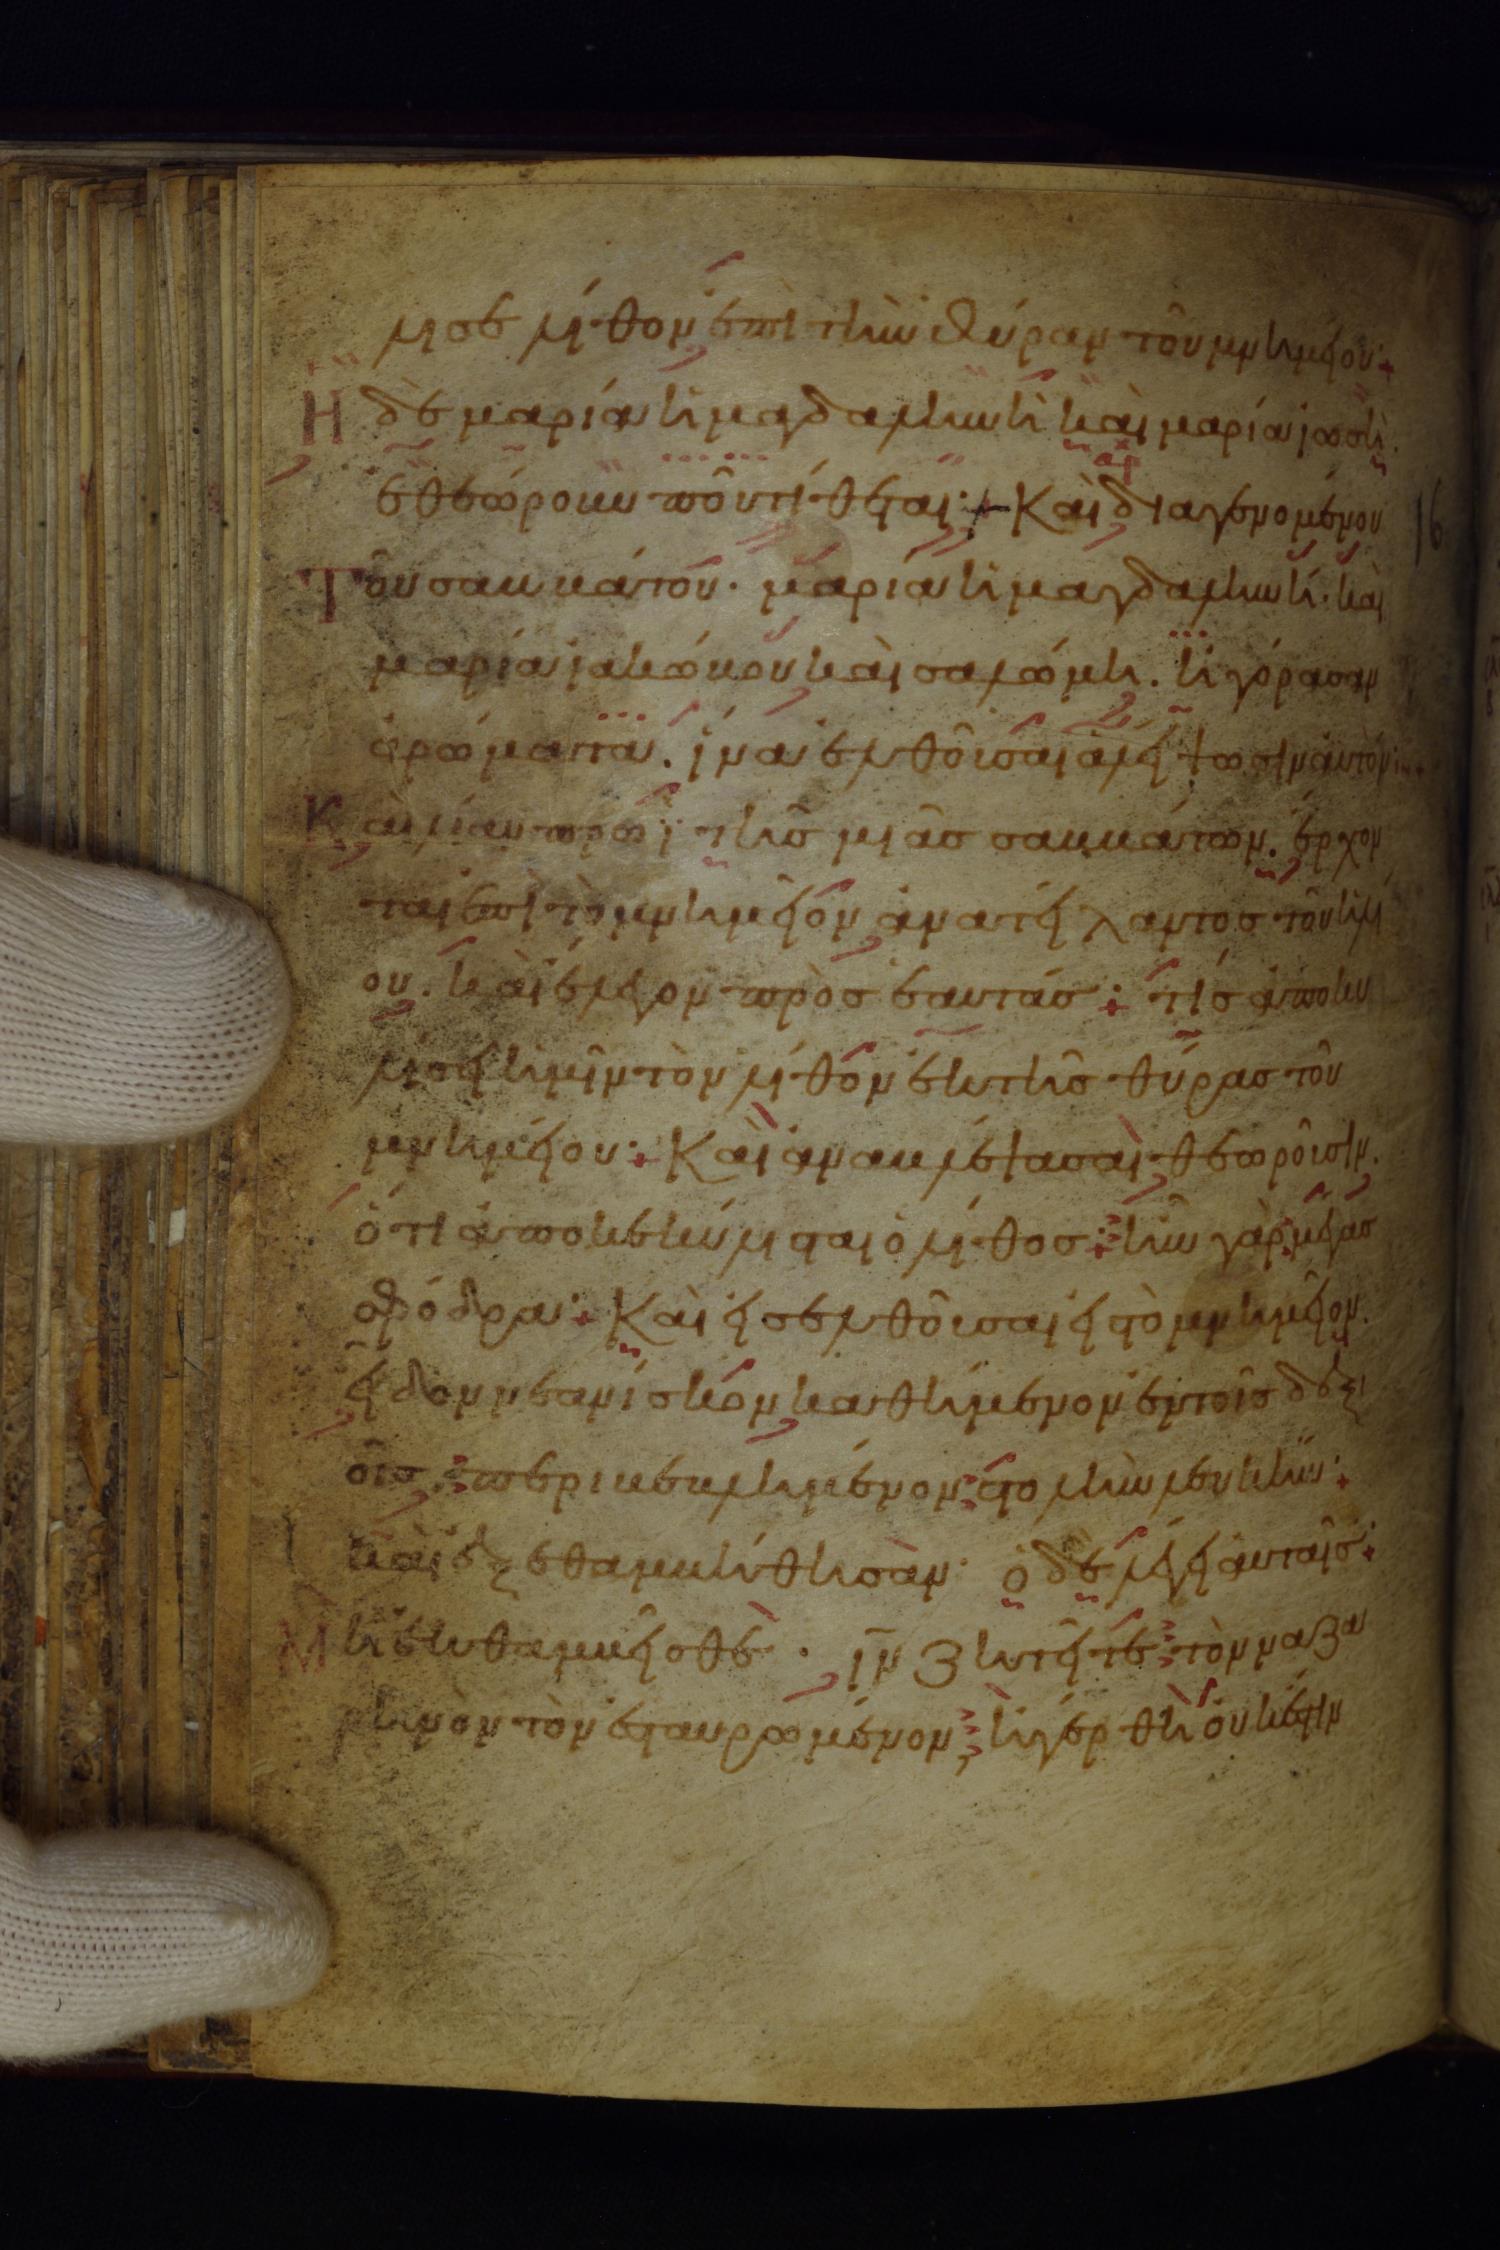 λισε λίθον ἐπὶ τὴν θύραν τοῦ μνημείου
Ἡ δὲ μαρία ἡ μαγδαληνὴ καὶ μαρία ἰωσῆ
ἐθεώρουν ποῦ τίθεται· Καὶ διαγενομένου 16
Τοῦ σαββάτου· μαρία ἡ μαγδαληνή· καὶ
μαρία ἰακώβου καὶ σαλώμη. ἠγόρασαν
ἀρώματα. ἵνα ἐλθοῦσαι ἀλείψωσιν αὐτόν
Καὶ λίαν πρωῒ τῆς μιᾶς σαββάτων. ἔρχον
ται ἐπὶ τὸ μνημεῖον ἀνατείλαντος τοῦ ἡλί
ου. καὶ ἔλεγον πρὸς ἑαυτάς· τίς ἀποκυ
λίσει ἡμῖν τὸν λίθον ἐκ τῆς θύρας τοῦ
μνημείου· Καὶ ἀναβλέψασαι θεωροῦσιν.
ὅτι ἀποκεκύλισται ὁ λίθος· ἦν γὰρ μέγας
σφόδρα· Καὶ εἰσελθοῦσαι εἰς τὸ μνημεῖον.
εἶδον νεανίσκον καθήμενον ἐν τοῖς δεξι
οῖς. περιβεβλημένον στολὴν λευκήν·
καὶ ἐξεθαμβήθησαν· ὁ δὲ λέγει αὐταῖς·
Μὴ ἐκθαμβεῖσθε· ἰν ζητεῖτε τὸν ναζα
ρηνὸν τὸν ἐσταυρωμένον, ἠγέρθη οὐκ ἔστιν